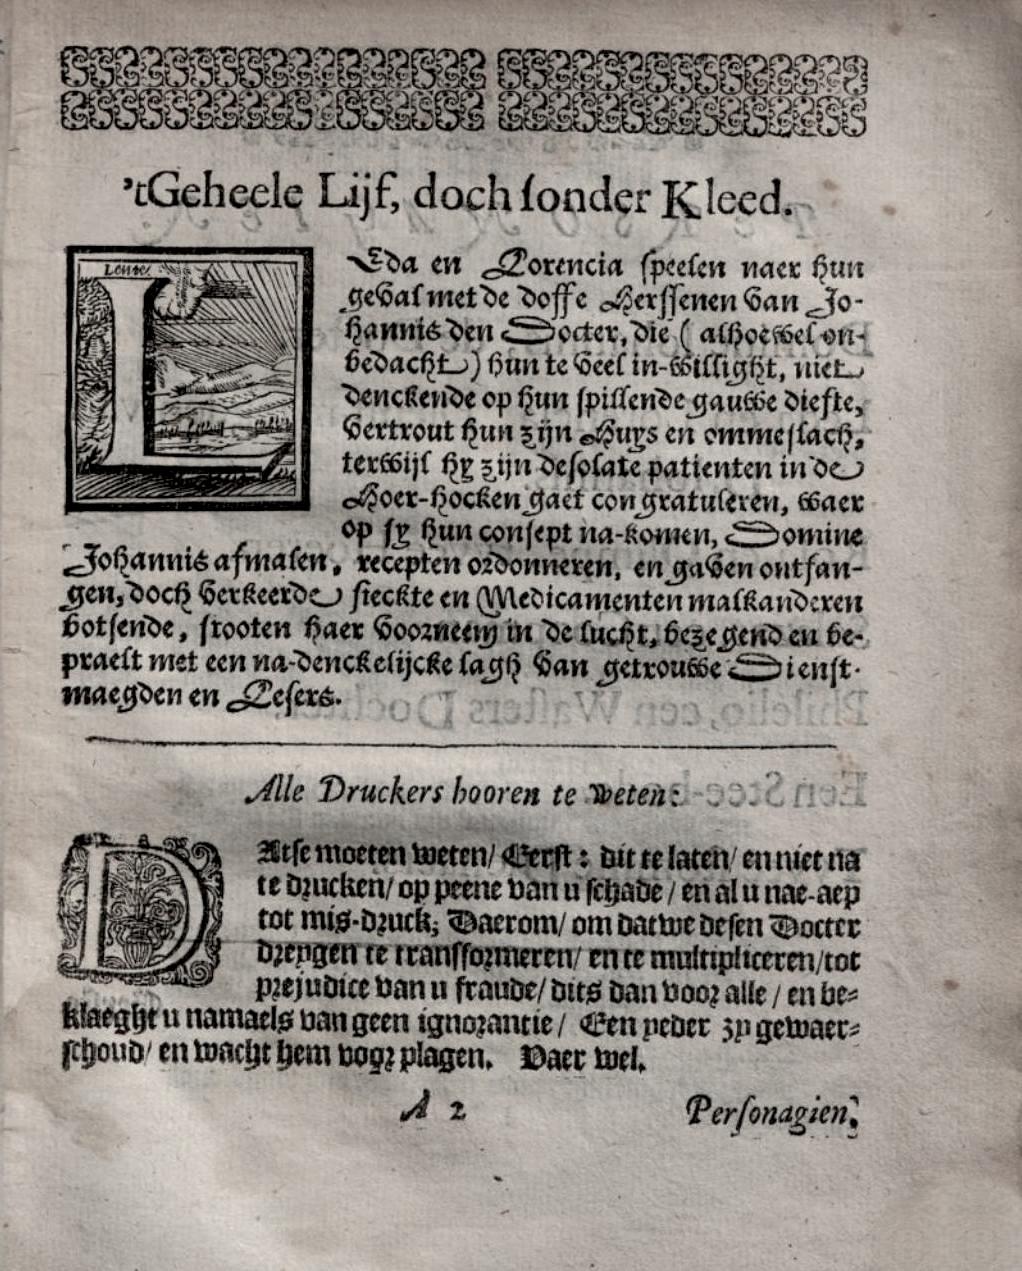 'tGeheele Lijf, doch sonder Kleed.
Lente
LEda en Lorencia speelen naer hun
geval met de doffe Herssenen van Jo-
hannis den Docter, die ( alhoewel on-
bedacht ) hun te veel in-willight, niet
denckende op hun spillende gauwe diefte,
vertrout hun zijn Huys en ommeslach,
terwijl hy zijn desolate patienten in de
Hoer-hocken gaet congratuleren, waer
op sy hun consept na-komen, Domine
Johannis afmalen, recepten ordonneren, en gaven ontfan-
gen, doch verkeerde sieckte en Medicamenten malkanderen
botsende, stooten haer voorneem in de lucht, bezegend en be-
praelt met een na-denckelijcke lagh van getrouwe Dienst-
maegden en Lesers.
Alle Druckers hooren te weten:
DAtse moeten weten/ Eerst: dit te laten/ en niet na
te drucken/ op peene van u schade / en al u nae-aep
tot mis-druck; Daerom/ om datwe desen Docter
dreygen te transformeren/ en te multipliceren/tot
prejudice van u fraude/ dits dan voor alle / en be-
klaeght u namaels van geen ignorantie / Een yeder zy gewaer-
schoud/ en wacht hem voor plagen. Vaer wel.
A 2
Personagien.